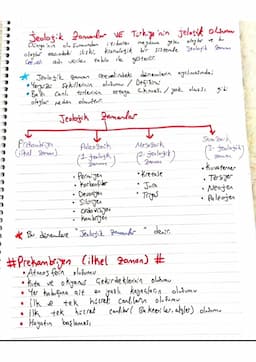 Jeolojik Zamanlar VE Türkiye'nin Jeolojik oluşumu
Dünya'nın oluşumundan itibaren
olaylar arasındaki ilişki kronolojik bir sistemde Jeolojik Zaman
adı verilen tablo ile gösterilir
* Jeolojik zaman dönemlerin ayrılmasındaki
• Yeryüzü Şekillerinin oluşumu / Değişimi
• Bazı Canlı türlerinin ortaya çıkması / yok olması gibi
olaylar neden olmuştur.
Jeolojik Zamanlar
Prekambriyen
(ilkel zaman)
Paleozoik
(1. jeolojik
zaman)
Mezozoik
(2. jeolojik
zaman)
Senozoik
(3. jeolojik
zaman)
• Permiyen
• Karbonifer
• Devoniyen
• Silüriyen
• Ordovisiyen
• Kambriyen
• Kretase
• Jura
• Triyas
• Kuvaterner
• Tersiyer
• Neojen
• Paleojen
* Bu dönemlere "Jeolojik Zamanlar" denir.
# Prekambriyen (ilkel zaman) #
• Atmosferin oluşumu
• Kıta ve okyanus Çekirdeklerinin oluşumu
• Yer kabuğuna ait en yaşlı kayaçların oluşumu
• İlk tek hücreli canlıların oluşumu
• İlk tek hücreli canlılar (Bakteriler, algler) oluşumu
• Hayatın başlaması